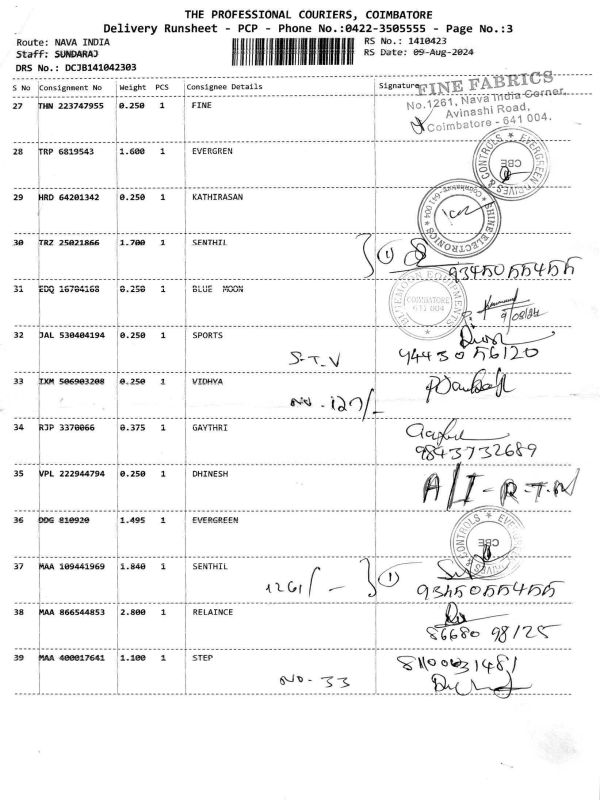 THE PROFESSIONAL COURIERS, COIMBATORE
Delivery Runsheet - PCP - Phone No.:0422-3505555 - Page No.:3
Route: NAVA INDIA
RS No.: 1410423
Staff: SUNDARAJ
RS Date: 09-Aug-2024
DRS No.: DCJB141042303
S No Consignment No Weight PCS Consignee Details Signature
27 THN 223747955 0.250 1 FINE
FINE FABRICS
No.1261, Nava India Corner,
Avinashi Road,
Coimbatore - 641 004.
28 TRP 6819543 1.600 1 EVERGREN
EVERGREEN DRIVES & CONTROLS
CBE
29 HRD 64201342 0.250 1 KATHIRASAN
SHINE ELECTRONICS
Coimbatore-641 004
30 TRZ 25021866 1.700 1 SENTHIL
1
9345055455
31 EDQ 16704168 0.250 1 BLUE MOON
EQUIPMENTS
COIMBATORE
641 004
9/08/24
32 JAL 530404194 0.250 1 SPORTS
S-T-V
9443056120
33 IXM 506903208 0.250 1 VIDHYA
NO - 127/-
34 RJP 3370066 0.375 1 GAYTHRI
9843732689
35 VPL 222944794 0.250 1 DHINESH
A/I-R-T-N
36 DDG 810920 1.495 1 EVERGREEN
CONTROLS
CBE
37 MAA 109441969 1.840 1 SENTHIL
1261/-
1
9345055455
38 MAA 866544853 2.800 1 RELAINCE
86680 98125
39 MAA 400017641 1.100 1 STEP
8110031481
NO- 33